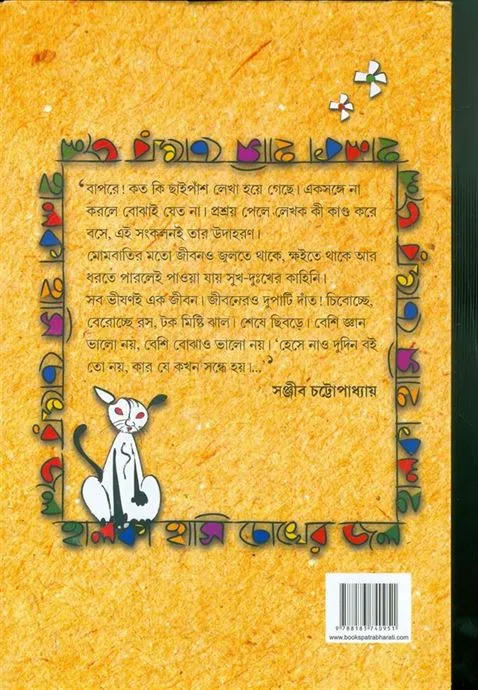 'বাপরে! কত কি ছাইপাঁশ লেখা হয়ে গেছে। একসঙ্গে না
করলে বোঝাই যেত না। প্রশ্রয় পেলে লেখক কী কাণ্ড করে
বসে, এই সংকলনই তার উদাহরণ।
মোমবাতির মতো জীবনও জ্বলতে থাকে, ক্ষইতে থাকে আর
ধরতে পারলেই পাওয়া যায় সুখ-দুঃখের কাহিনি।
সব ভীষণই এক জীবন। জীবনেরও দুপাটি দাঁত। চিবোচ্ছে,
বেরোচ্ছে রস, টক মিষ্টি ঝাল। শেষে ছিবড়ে। বেশি জ্ঞান
ভালো নয়, বেশি বোঝাও ভালো নয়। 'হেসে নাও দুদিন বই
তো নয়, কার যে কখন সন্ধে হয়।...'
সঞ্জীব চট্টোপাধ্যায়
হালকা হাসি চোখের জল
হালকা হাসি চোখের জল
9 788183 740951
www.bookspatrabharati.com